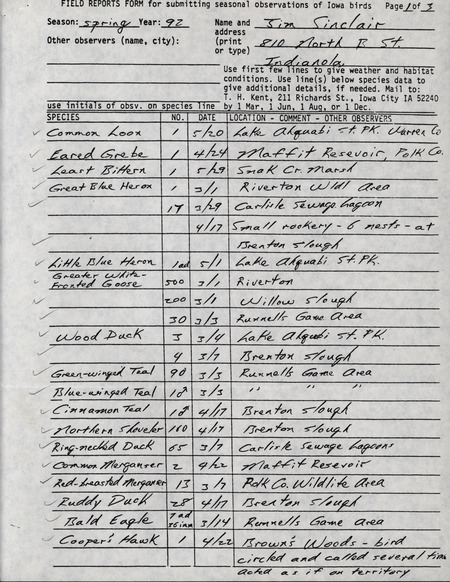 FIELD REPORTS FORM for submitting seasonal observations of Iowa birds Page 1 of 3
Season: Spring Year: 92 Name and Jim Sinclair
Other observers (name, city): address
(print 810 North B St.
or type)
Indianola
Use first few lines to give weather and habitat
conditions. Use line(s) below species data to
give additional details, if needed. Mail to:
T. H. Kent, 211 Richards St., Iowa City IA 52240
use initials of obsv. on species line by 1 Mar, 1 Jun, 1 Aug, or 1 Dec.
SPECIES NO. DATE LOCATION - COMMENT - OTHER OBSERVERS
Common Loon 1 5/20 Lake Ahquabi St. PK. Warren Co
Eared Grebe 1 4/24 Maffit Resevoir, Polk Co.
Least Bittern 1 5/29 Smak Cr. Marsh
Great Blue Heron 1 3/1 Riverton Wldl Area
17 3/29 Carlisle Sewage Lagoon
4/17 Small rookery - 6 nests - at
Brenton Slough
Little Blue Heron 1 ad 5/1 Lake Ahquabi St. PK.
Greater White-
Fronted Goose 500 3/1 Riverton
200 3/1 Willow Slough
30 3/3 Runnells Game Area
Wood Duck 3 3/4 Lake Ahquabi St. PK.
4 3/7 Brenton Slough
Green-winged Teal 90 3/3 Runnells Game Area
Blue-winged Teal 1♂ 3/3 " " "
Cinnamon Teal 1♂ 4/17 Brenton Slough
Northern Shoveler 160 4/17 Brenton Slough
Ring-necked Duck 65 3/7 Carlisle Sewage Lagoons
Common Merganser 2 4/22 Maffit Resevoir
Red-breasted Merganser 13 3/7 Polk Co. Wildlife Area
Ruddy Duck 28 4/17 Brenton Slough
Bald Eagle 7 ad 3/14 Runnells Game Area
Cooper's Hawk 1 4/22 Brown's Woods - bird
circled and called several times
acted as if on territory